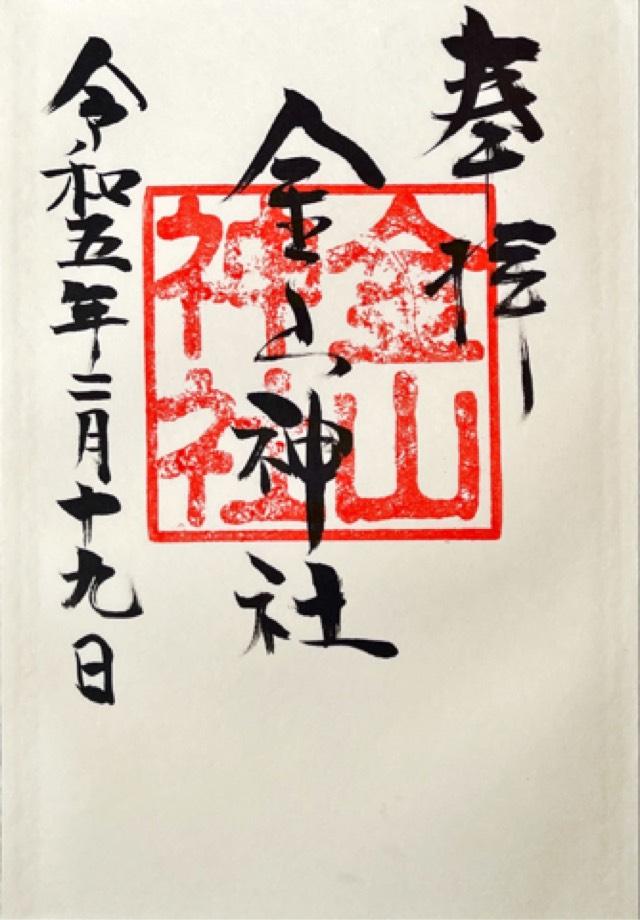 奉拝
金山神社
金山神社
令和五年二月十九日